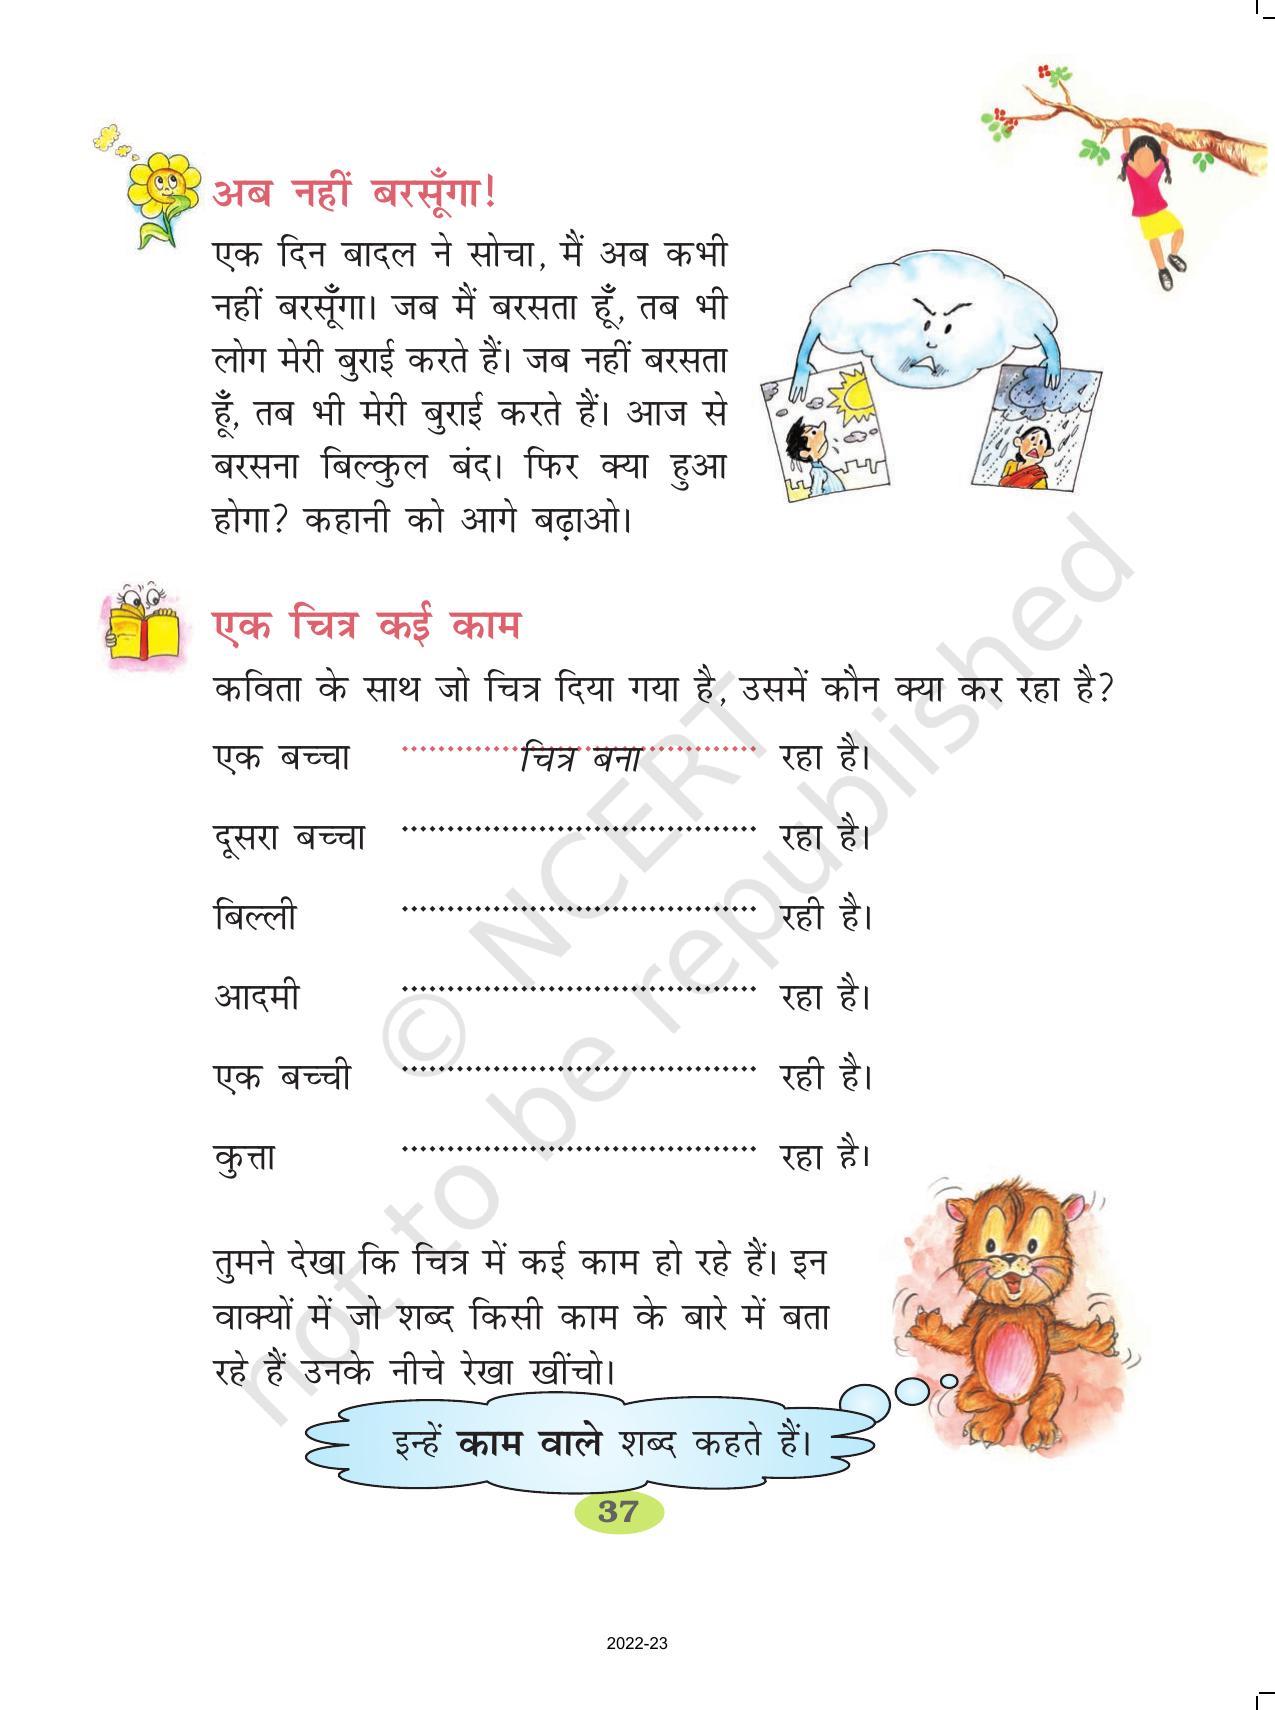 अब नहीं बरसूँगा!
एक दिन बादल ने सोचा, मैं अब कभी
नहीं बरसूँगा। जब मैं बरसता हूँ, तब भी
लोग मेरी बुराई करते हैं। जब नहीं बरसता
हूँ, तब भी मेरी बुराई करते हैं। आज से
बरसना बिल्कुल बंद। फिर क्या हुआ
होगा? कहानी को आगे बढ़ाओ।
एक चित्र कई काम
कविता के साथ जो चित्र दिया गया है, उसमें कौन क्या कर रहा है?
एक बच्चा चित्र बना रहा है।
दूसरा बच्चा ....................................... रहा है।
बिल्ली ....................................... रही है।
आदमी ....................................... रहा है।
एक बच्ची ....................................... रही है।
कुत्ता ....................................... रहा है।
तुमने देखा कि चित्र में कई काम हो रहे हैं। इन
वाक्यों में जो शब्द किसी काम के बारे में बता
रहे हैं उनके नीचे रेखा खींचो।
इन्हें काम वाले शब्द कहते हैं।
37
2022-23
© NCERT
not to be republished